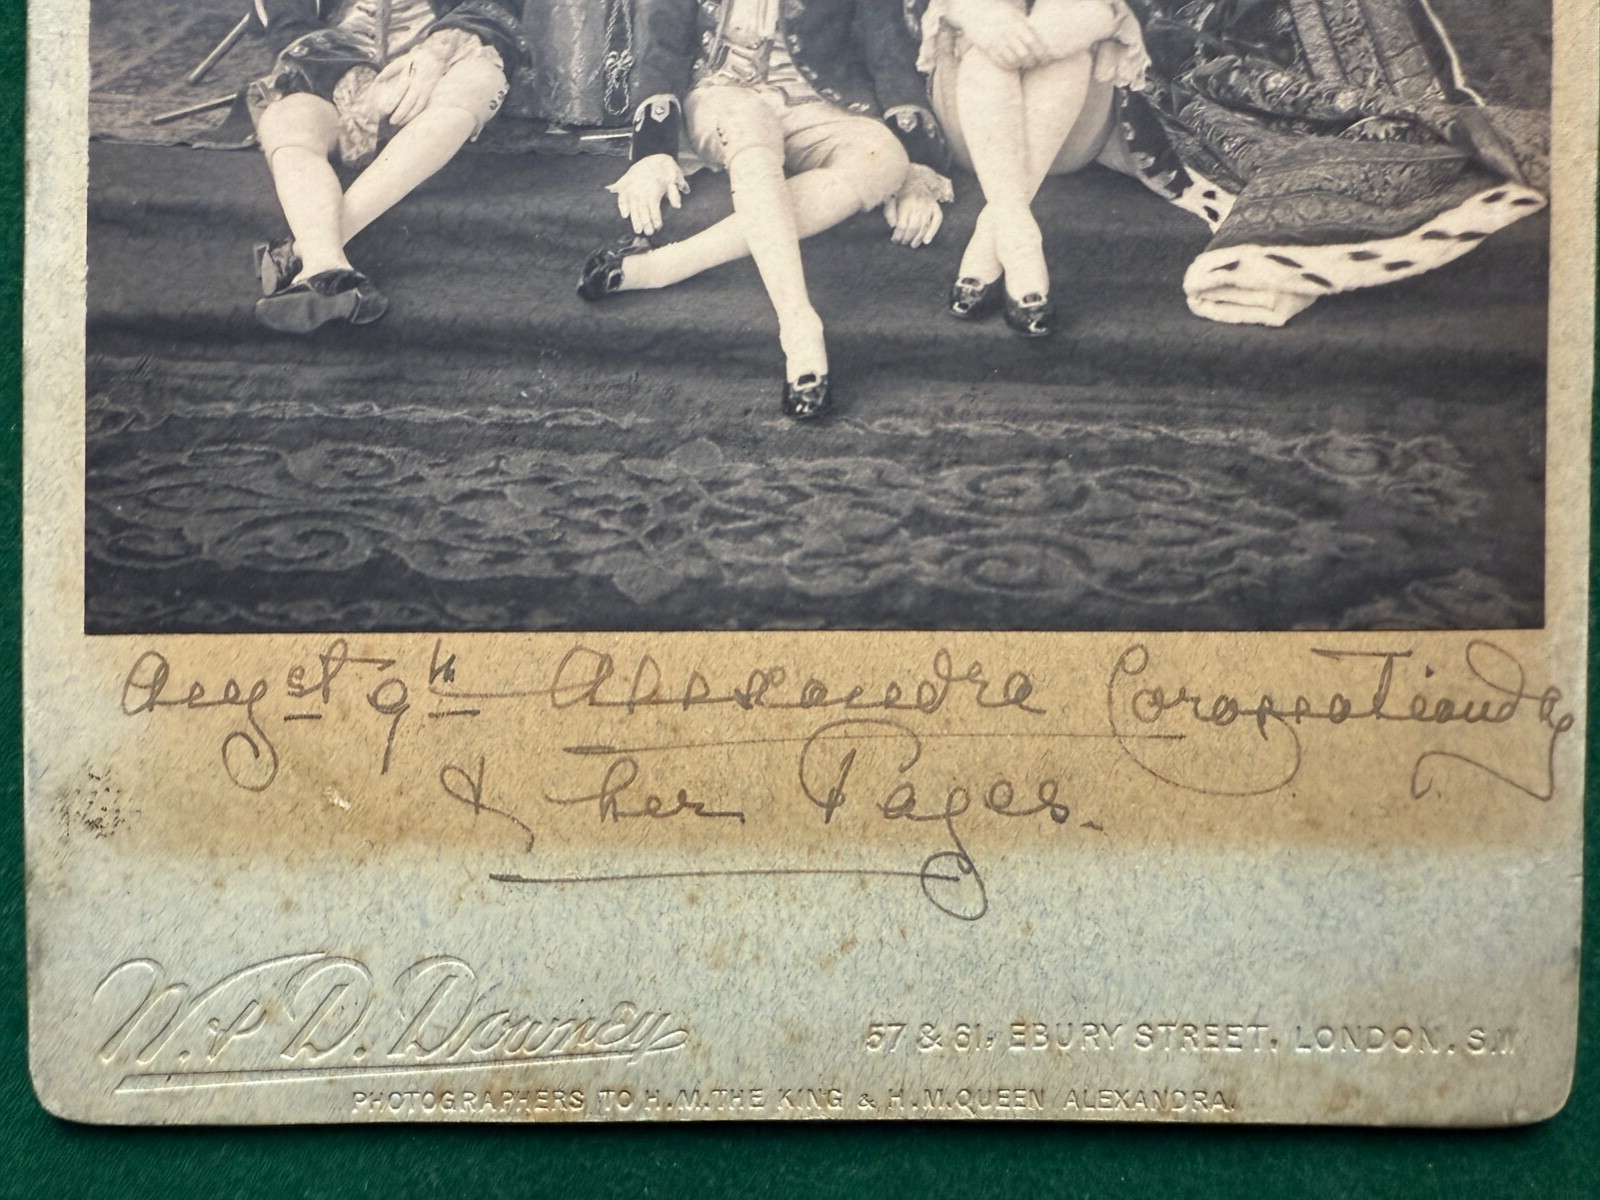 Augst 9th Alexandra Coronation day
& her Pages.
W. & D. Downey
57 & 61, EBURY STREET, LONDON, S.W
PHOTOGRAPHERS TO H.M. THE KING & H.M. QUEEN ALEXANDRA.